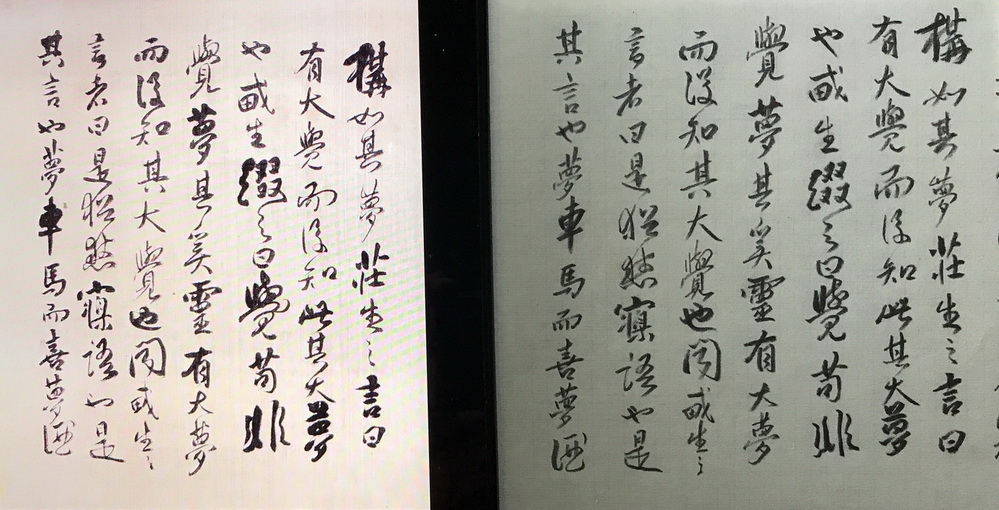 構如其夢莊生之言曰
有大覺而後知此其大夢
也或生綴之曰覺苟非
覺夢其奚靈有大夢
而後知其大覺也閻或生之
言者曰是猶愁寱語也是
其言也夢車馬而喜夢酒
構如其夢莊生之言曰
有大覺而後知此其大夢
也或生綴之曰覺苟非
覺夢其奚靈有大夢
而後知其大覺也閻或生之
言者曰是猶愁寱語也是
其言也夢車馬而喜夢酒